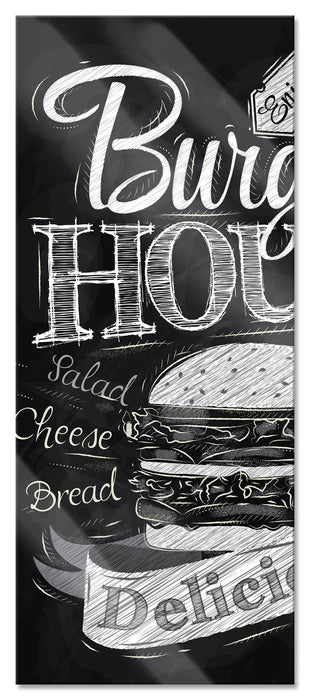 Enj
Burg
HOU
Salad
Cheese
Bread
Delicio